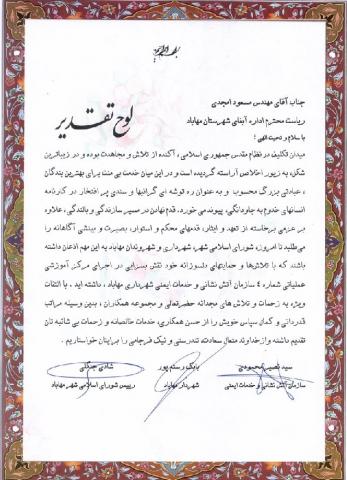 جناب آقای مهندس مسعود امجدی
ریاست محترم اداره آبفای شهرستان مهاباد
لوح تقدیر
با سلام و تحیت الهی ؛
میدان تکلیف در نظام مقدس جمهوری اسلامی، آکنده از تلاش و مجاهدت بوده و در زیباترین
شکل، به زیور اخلاص آراسته گردیده است و در این میان خدمت بی منت برای بهترین بندگان
، عبادتی بزرگ محسوب و به عنوان ره توشه ای گرانبها و سندی پر افتخار در کارنامه
انسانهای خدوم به جاودانگی، پیوند می خورد. قدم نهادن در مسیر سازندگی و بالندگی، علاوه
بر عزمی برخاسته از تعهد و ایثار، قدمهای محکم و استوار، بصیرت و بینشی آگاهانه را
می‌طلبد تا امروزه شورای اسلامی شهر، شهرداری و شهروندان مهاباد به این مهم اذعان داشته
باشند که با تلاش‌ها و حمایتهای دلسوزانه خود نقش بسزایی در اجرای مرکز آموزشی
عملیاتی شماره ٤ سازمان آتش نشانی و خدمات ایمنی شهرداری مهاباد، داشته اید . با التفات
ویژه به زحمات و تلاش های مجدانه حضرتعالی و مجموعه همکاران ، بدین وسیله مراتب
قدردانی و کمال سپاس خویش را از حسن همکاری، خدمات خالصانه و زحمات بی شائبه تان
تقدیم داشته و از خداوند متعال سعادت، تندرستی و نیک فرجامی را برایتان خواستاریم .
سید نصیر محمودی بابک رستم پور شادی جنگلی
سازمان آتش نشانی و خدمات ایمنی شهردار مهاباد رییس شورای اسلامی شهر مهاباد